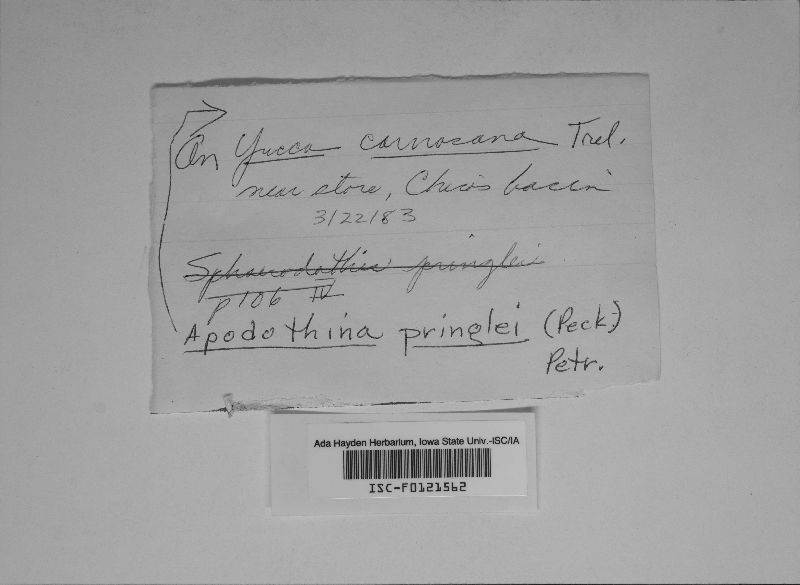 On Yucca carnosana Trel.
near store, Chisos bacin
3/22/83
Sphaerodothis pringlei
p 106 IV
Apodothina pringlei (Peck)
Petr.
Ada Hayden Herbarium, Iowa State Univ.-ISC/IA
ISC-F0121562